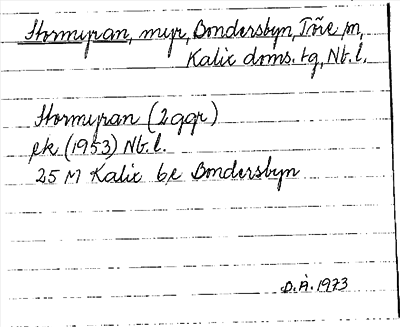 Stormyran, myr, Bondersbyn, Töre sn,
Kalix doms. tg, Nb. l.
Stormyran (2 ggr)
ek. (1953) Nb. l.
25 M Kalix 6c Bondersbyn
D.Å. 1973